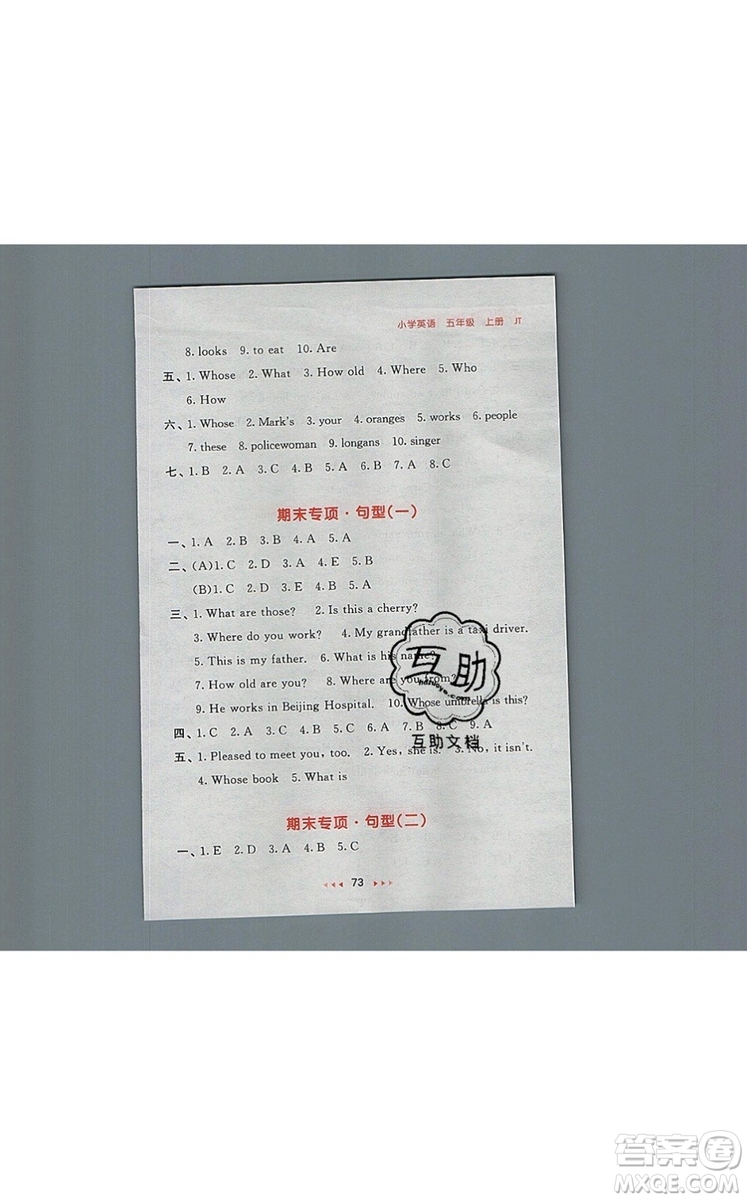 小学英语 五年级 上册 JT
8. looks 9. to eat 10. Are
五、1. Whose 2. What 3. How old 4. Where 5. Who
6. How
六、1. Whose 2. Mark's 3. your 4. oranges 5. works 6. people
7. these 8. policewoman 9. longans 10. singer
七、1. B 2. A 3. C 4. B 5. C 6. B 7. A 8. C
期末专项·句型(一)
一、1. A 2. B 3. B 4. A 5. A
二、(A)1. C 2. D 3. A 4. E 5. B
(B)1. C 2. D 3. E 4. B 5. A
三、1. What are those? 2. Is this a cherry?
3. Where do you work? 4. My grandfather is a taxi driver.
5. This is my father. 6. What is his name?
7. How old are you? 8. Where are you from?
9. He works in Beijing Hospital. 10. Whose umbrella is this?
四、1. C 2. A 3. C 4. C 5. C 6. A 7. B 8. C 9. A
五、1. Pleased to meet you, too. 2. Yes, she is. 3. No, it isn't.
4. Whose book 5. What is
期末专项·句型(二)
一、1. E 2. D 3. A 4. B 5. C
73
互助
互助文档
答案圈
MXQE.COM